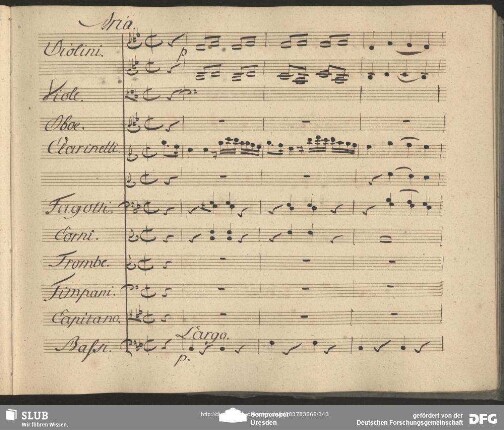 Aria.
Violini.
p
Viole.
Oboe.
Clarinetti
Fagotti.
Corni.
Trombe.
Timpani.
Capitano.
Largo.
Bassi.
p.
SLUB
Wir führen Wissen.
Dresden
gefördert von der
Deutschen Forschungsgemeinschaft
DFG